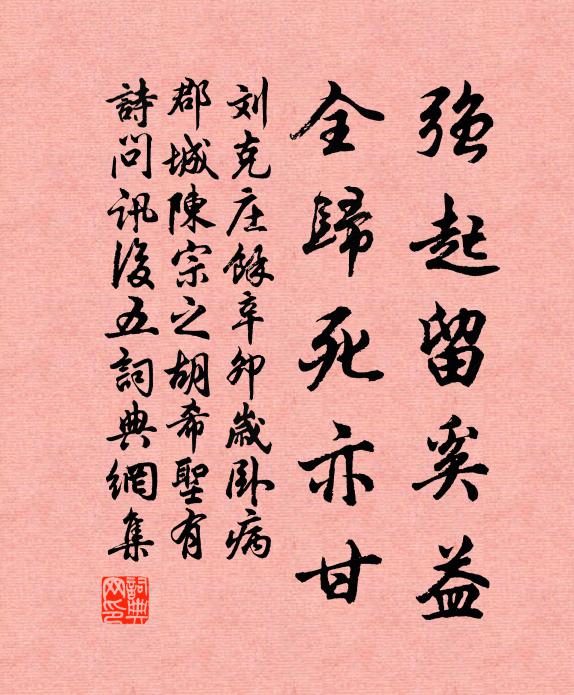 強起留奚益
全歸死亦甘
刘克庄餘辛卯歲卧病
郡城陳宗之胡希聖有
詩問訊後五詞典網集
詞典網印